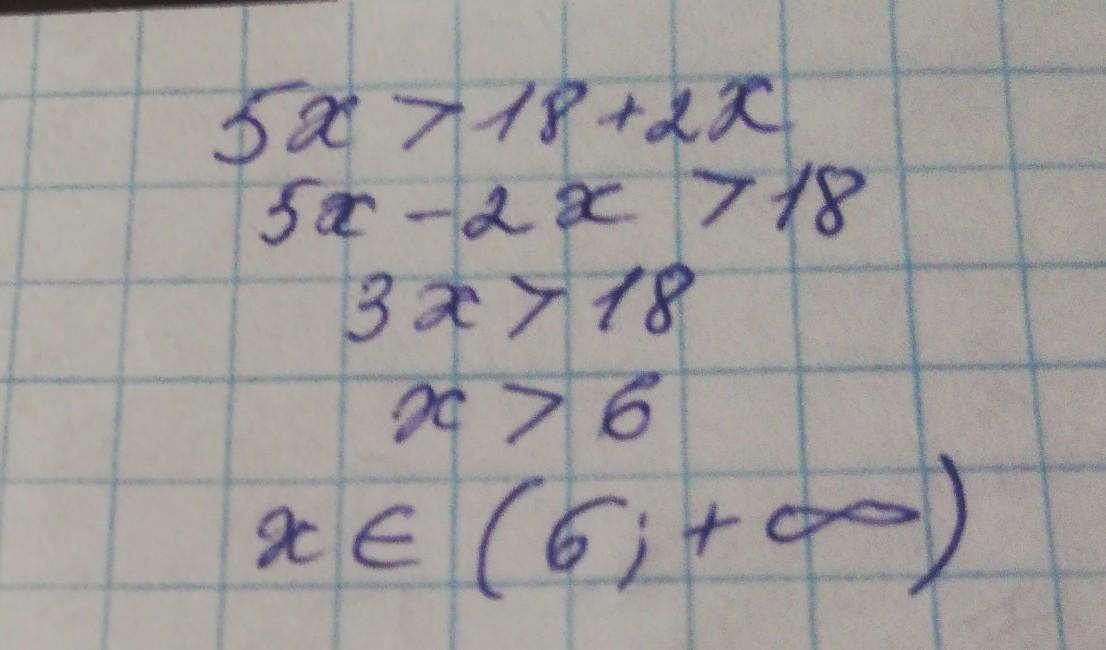 5x > 18 + 2x
5x - 2x > 18
3x > 18
x > 6
x ∈ (6; + ∞)